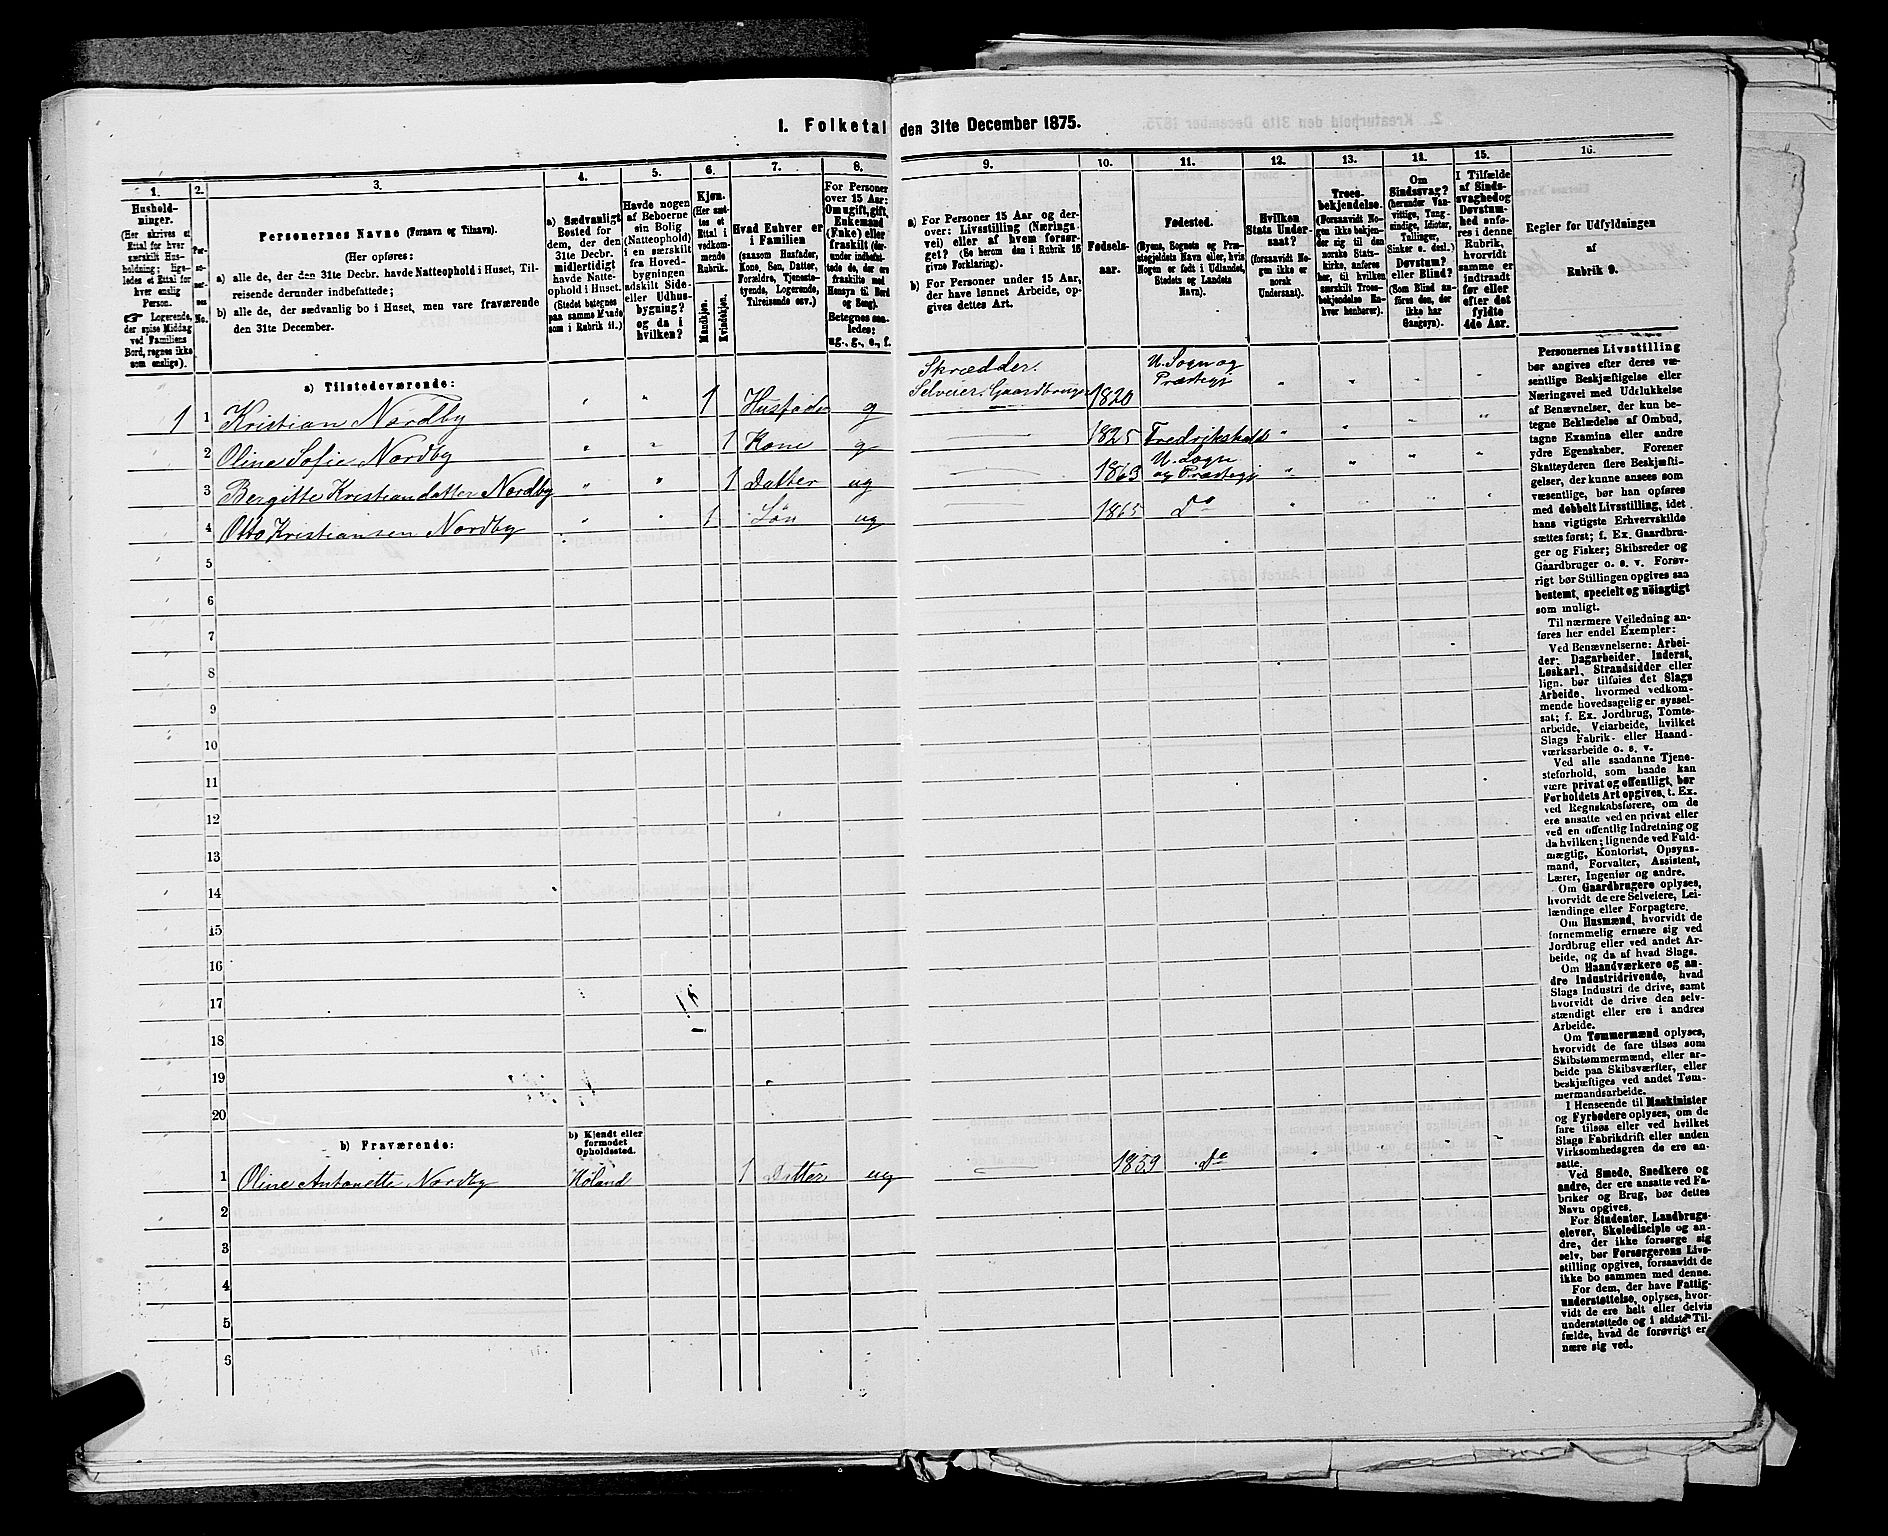 I. Folketal den 31te December 1875.
1. 2. 3. 4. 5. 6. 7. 8. 9. 10. 11. 12. 13. 14. 15. 16.
Hushold-
ninger.
(Her skrives et
Ettal for hver
særskilt Hus-
holdning; lige-
ledes et Ettal for
hver enslig
Person.
☞ Logerende,
der spise Middag
ved Familiens
Bord, regnes ikke
som enslige).
Per-
so-
ner-
nes
No.
Personernes Navne (Fornavn og Tilnavn).
(Her opføres:
a) alle de, der den 31te Decbr. havde Natteophold i Huset, Til-
reisende derunder indbefattede;
b) alle de, der sædvanlig bo i Huset, men vare fraværende
den 31te December.
a) Sædvanligt
Bosted for
dem, der den
31te Decbr.
midlertidigt
havde Natte-
ophold i Huset.
(Stedet betegnes
paa samme Maade
som i Rubrik 11.)
Havde nogen
af Beboerne
sin Bolig
(Natteophold)
i en særskilt
fra Hoved-
bygningen
adskilt Side-
eller Udhus-
bygning?
og da i
hvilken?
Kjøn.
(Her sæt-
tes et
Ettal i
vedkom-
mende
Rubrik.
Mandkjøn.
Kvindekjøn.
Hvad Enhver er
i Familien
(saasom Husfader,
Kone, Søn, Datter,
Forældre, Tjeneste-
tyende, Logerende,
Tilreisende osv.)
For Personer
over 15 Aar:
Om ugift, gift,
Enkemand
(Enke) eller
fraskilt (der-
under indbefat-
tede de, der ere
fraskilte med
Hensyn til Bord
og Seng).
Betegnes saa-
ledes:
ug., g., e., f.
a) For Personer 15 Aar og der-
over: Livsstilling (Nærings-
vei) eller af hvem forsør-
get? (Se herom den i Rubrik 16
givne Forklaring).
b) For Personer under 15 Aar,
der have lønnet Arbeide, op-
gives dettes Art.
Fødsels-
aar.
Fødested.
(Byens, Sognets og Præ-
stegjeldets Navn eller, hvis
Nogen er født i Udlandet,
Stedets og Landets
Navn).
Hvilken
Stats Under-
saat?
(forsaavidt No-
gen ikke er
norsk
Undersaat).
Troes-
bekjendelse.
(Forsaavidt No-
gen ikke bekjen-
der sig til den
norske Stats-
kirke, anføres
her, til hvilken
særskilt Troes-
bekjendelse En-
hver henhører).
Om
Sindssvag?
(herunder Van-
vittige, Tung-
sindige, Idioter,
Tullinger,
Sinker o. desl.)
Døvstum?
eller Blind?
(Som Blind an-
føres den, der
ikke har
Gangsyn).
I Tilfælde
af Sinds-
svaghed og
Døvstum-
hed anfø-
res i denne
Rubrik,
hvorvidt
samme er
indtraadt
før eller
efter det
fyldte
4de Aar.
Regler for Udfyldningen
af
Rubrik 9.
a) Tilstedeværende:
1 1 Kristian Nordby " " 1 Husfader g Skrædder. Selveier. Gaardbruger 1820 U. Sogn og Præstegj " " " "
2 Oline Sofie Nordby " " 1 Kone g 1825 Fredrikshald " " " "
3 Bergitte Kristiandatter Nordby " " 1 Datter ug 1863 U. Sogn og Præstegj " " " "
4 Otto Kristiansen Nordby " " 1 Søn ug 1865 Do " " " "
5
6
7
8
9
10
11
12
13
14
15
16
17
18
19
20
b) Fraværende:
b) Kjendt eller
formodet
Opholdssted.
1 Oline Antonette Nordby Høland 1 Datter ug 1859 Do " " " "
2
3
4
5
6
Personernes Livsstilling
bør angives efter deres væ-
sentlige Beskjæftigelse eller
Næringsvei med Udelukkelse
af Benævnelser, der kun be-
tegne Beklædelse af Ombud,
tagne Examina eller andre
ydre Egenskaber. Forener
Skatteyderen flere Beskjæfti-
gelser, der kunne ansees som
væsentlige, bør han opføres
med dobbelt Livsstilling, idet
hans vigtigste Erhvervskilde
sættes først; f. Ex. Gaardbru-
ger og Fisker; Skibsreder og
Gaardbruger o. s. v. Forøv-
rigt bør Stillingen opgives saa
bestemt, specielt og nøiagtigt
som muligt.
Til nærmere Veiledning an-
føres her endel Exempler:
Ved Benævnelserne: Arbei-
der, Dagarbeider, Inderst,
Løskarl, Strandsidder eller
lign. bør tilføies det Slags
Arbeide, hvormed vedkom-
mende hovedsagelig er syssel-
sat; f. Ex. Jordbrug, Tomte-
arbeide, Veiarbeide, hvilket
Slags Fabrik- eller Haand-
værksarbeide o. s. v.
Ved alle saadanne Tjene-
steforhold, som baade kan
være privat og offentligt, bør
Forholdets Art opgives, t. Ex.
ved Regnskabsførere, om de
ere ansatte ved en privat eller
ved en offentlig Indretning og
da hvilken; lignende ved Fuld-
mægtig, Kontorist, Opsyns-
mand, Forvalter, Assistent,
Lærer, Ingeniør og andre.
Om Gaardbrugere oplyses,
hvorvidt de ere Selveiere, Lei-
lændinge eller Forpagtere.
Om Husmænd, hvorvidt de
fornemmelig ernære sig ved
Jordbrug eller ved andet Ar-
beide, og da af hvad Slags.
Om Haandværkere og an-
dre Industridrivende, hvad
Slags Industri de drive, samt
hvorvidt de drive den selv-
stændigt eller ere i andres
Arbeide.
Om Tømmermænd oplyses,
hvorvidt de fare tilsøs som
Skibstømmermænd, eller ar-
beide paa Skibsværfter, eller
beskjæftiges ved andet Tøm-
mermandsarbeide.
I Henseende til Maskinister
og Fyrbødere oplyses, om de
fare tilsøs eller ved hvilket
Slags Fabrikdrift eller anden
Virksomhedsgren de ere an-
satte.
Ved Smede, Snedkere og
andre, der ere ansatte ved Fa-
briker og Brug, bør dettes
Navn opgives.
For Studenter, Landbrugs-
elever, Skoledisciple og an-
dre, der ikke forsørge sig
selv, bør Forsørgerens Livs-
stilling opgives, forsaavidt de
ikke bo sammen med denne.
For dem, der have Fattig-
understøttelse, oplyses, hvor-
vidt de ere helt eller delvis
understøttede og i sidste Til-
fælde, hvad de forøvrigt er-
nære sig ved.